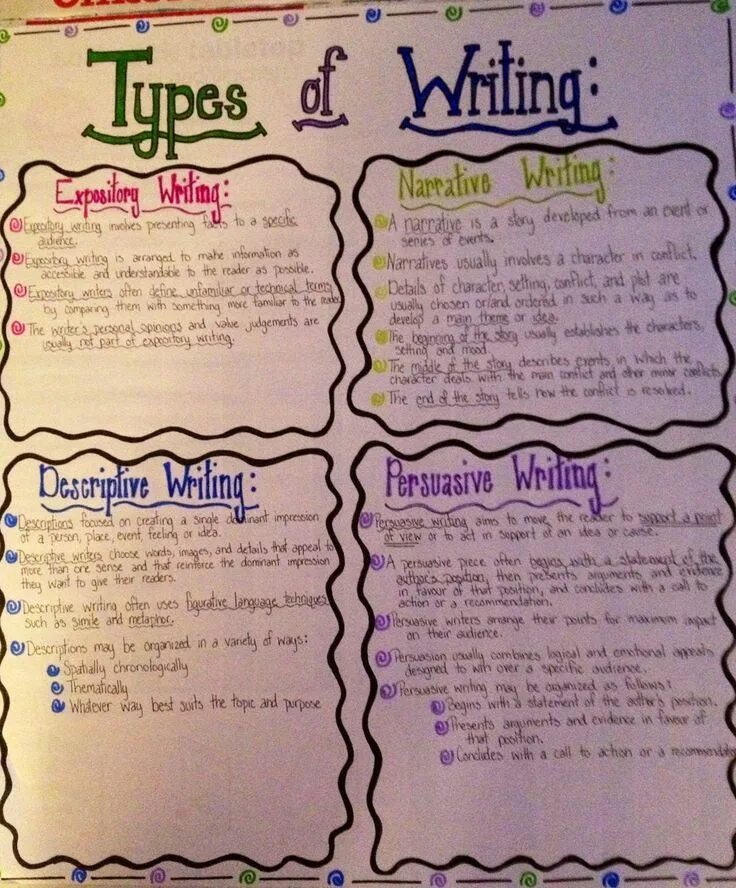 Types of Writing:
Expository Writing:
Expository writing involves presenting facts to a specific
audience.
Expository writing is arranged to make information as
accessible and understandable to the reader as possible.
Expository writers often define unfamiliar or technical terms
by comparing them with something more familiar to the reader.
The writer's personal opinions and value judgements are
usually not part of expository writing.
Narrative Writing:
A narrative is a story developed from an event or
series of events.
Narratives usually involves a character in conflict.
Details of character, setting, conflict, and plot are
usually chosen or/and ordered in such a way as to
develop a main theme or idea.
The beginning of the story usually establishes the characters,
setting and mood.
The middle of the story describes events in which the
character deals with the main conflict and other minor conflicts.
The end of the story tells how the conflict is resolved.
Descriptive Writing:
Descriptions focused on creating a single dominant impression
of a person, place, event, feeling or idea.
Descriptive writers choose words, images, and details that appeal to
more than one sense and that reinforce the dominant impression
they want to give their readers.
Descriptive writing often uses figurative language techniques
such as simile and metaphor.
Descriptions may be organized in a variety of ways:
Spatially chronologically
Thematically
Whatever way best suits the topic and purpose
Persuasive Writing:
Persuasive writing aims to move the reader to support a point
of view or to act in support of an idea or cause.
A persuasive piece often begins with a statement of the
author's position, then presents arguments and evidence
in favour of that position, and concludes with a call to
action or a recommendation.
Persuasive writers arrange their points for maximum impact
on their audience.
Persuasion usually combines logical and emotional appeals
designed to win over a specific audience.
Persuasive writing may be organized as follows:
Begins with a statement of the author's position.
Presents arguments and evidence in favour of
that position.
Concludes with a call to action or a recommendatio